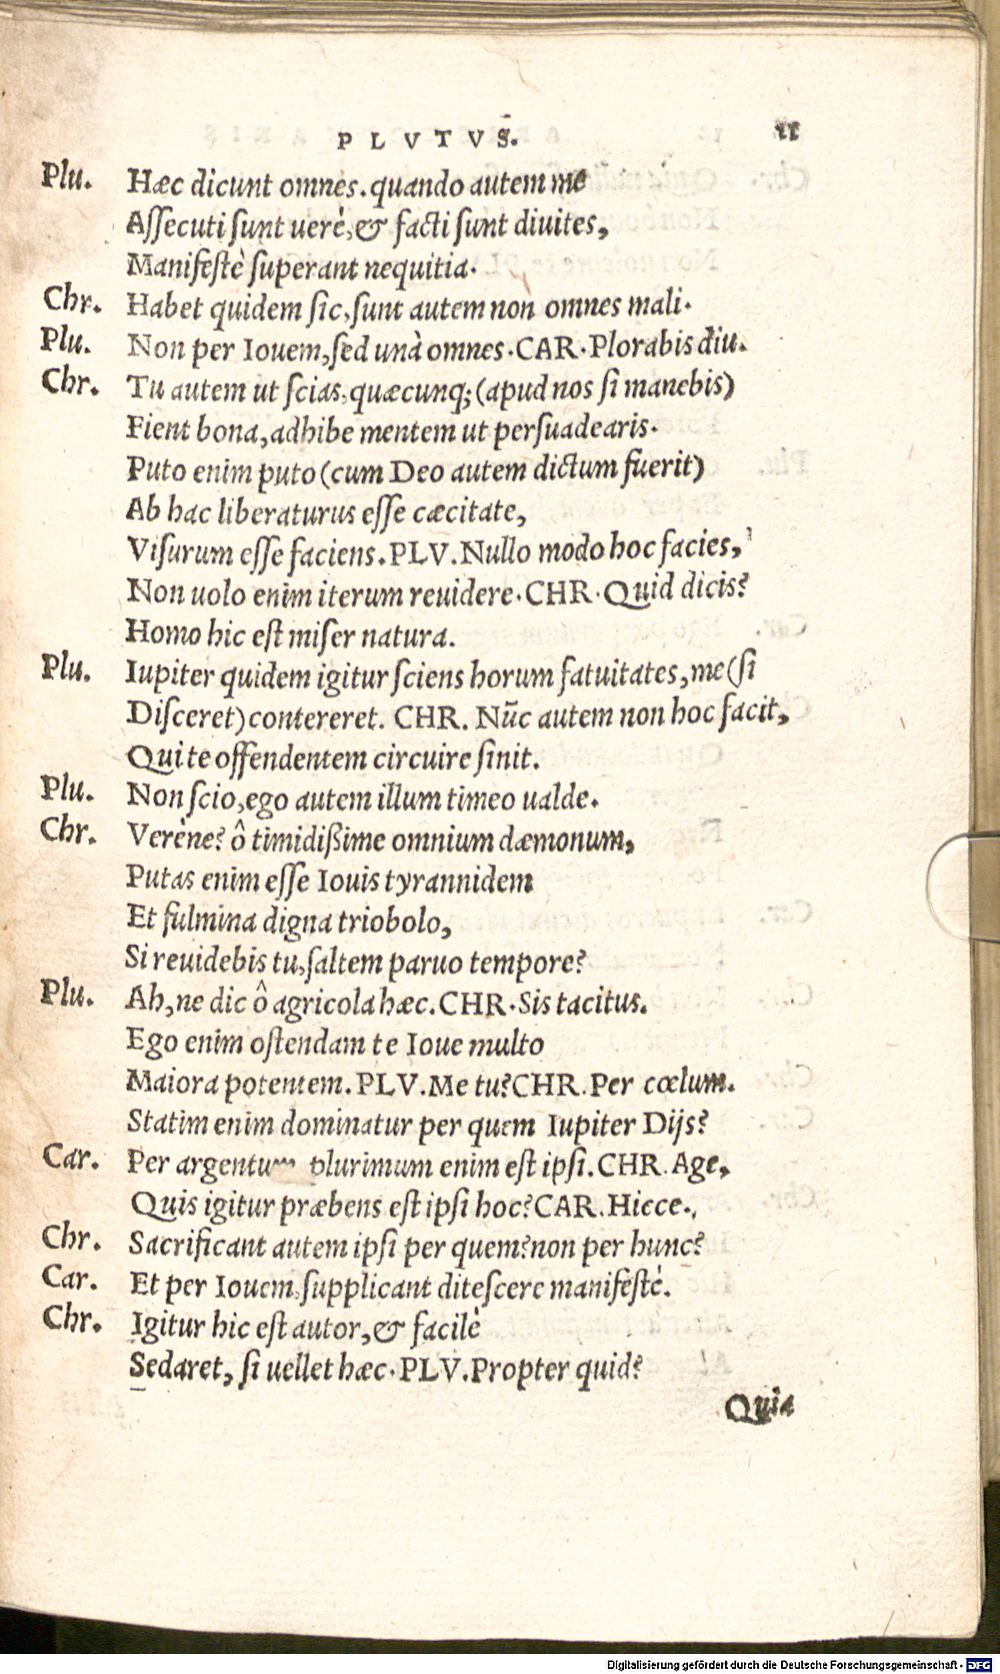 PLVTVS. 11
Plu. Hæc dicunt omnes. quando autem me
Assecuti sunt uerè, & facti sunt diuites,
Manifestè superant nequitia.
Chr. Habet quidem sic, sunt autem non omnes mali.
Plu. Non per Iouem, sed unà omnes. CAR. Plorabis diu.
Chr. Tu autem ut scias, quæcunq; (apud nos si manebis)
Fient bona, adhibe mentem ut persuadearis.
Puto enim puto (cum Deo autem dictum fuerit)
Ab hac liberaturus esse cæcitate,
Visurum esse faciens. PLV. Nullo modo hoc facies,
Non uolo enim iterum reuidere. CHR. Quid dicis?
Homo hic est miser natura.
Plu. Iupiter quidem igitur sciens horum fatuitates, me (si
Disceret) contereret. CHR. Nũc autem non hoc facit,
Qui te offendentem circuire sinit.
Plu. Non scio, ego autem illum timeo ualde.
Chr. Verène? ô timidißime omnium dæmonum,
Putas enim esse Iouis tyrannidem
Et fulmina digna triobolo,
Si reuidebis tu, saltem paruo tempore?
Plu. Ah, ne dic ô agricola hæc. CHR. Sis tacitus.
Ego enim ostendam te Ioue multo
Maiora potentem. PLV. Me tu? CHR. Per cœlum.
Statim enim dominatur per quem Iupiter Dijs?
Car. Per argentum plurimum enim est ipsi. CHR. Age,
Quis igitur præbens est ipsi hoc? CAR. Hicce.
Chr. Sacrificant autem ipsi per quem? non per hunc?
Car. Et per Iouem, supplicant ditescere manifestè.
Chr. Igitur hic est autor, & facilè
Sedaret, si uellet hæc. PLV. Propter quid?
Quia
Digitalisierung gefördert durch die Deutsche Forschungsgemeinschaft - DFG